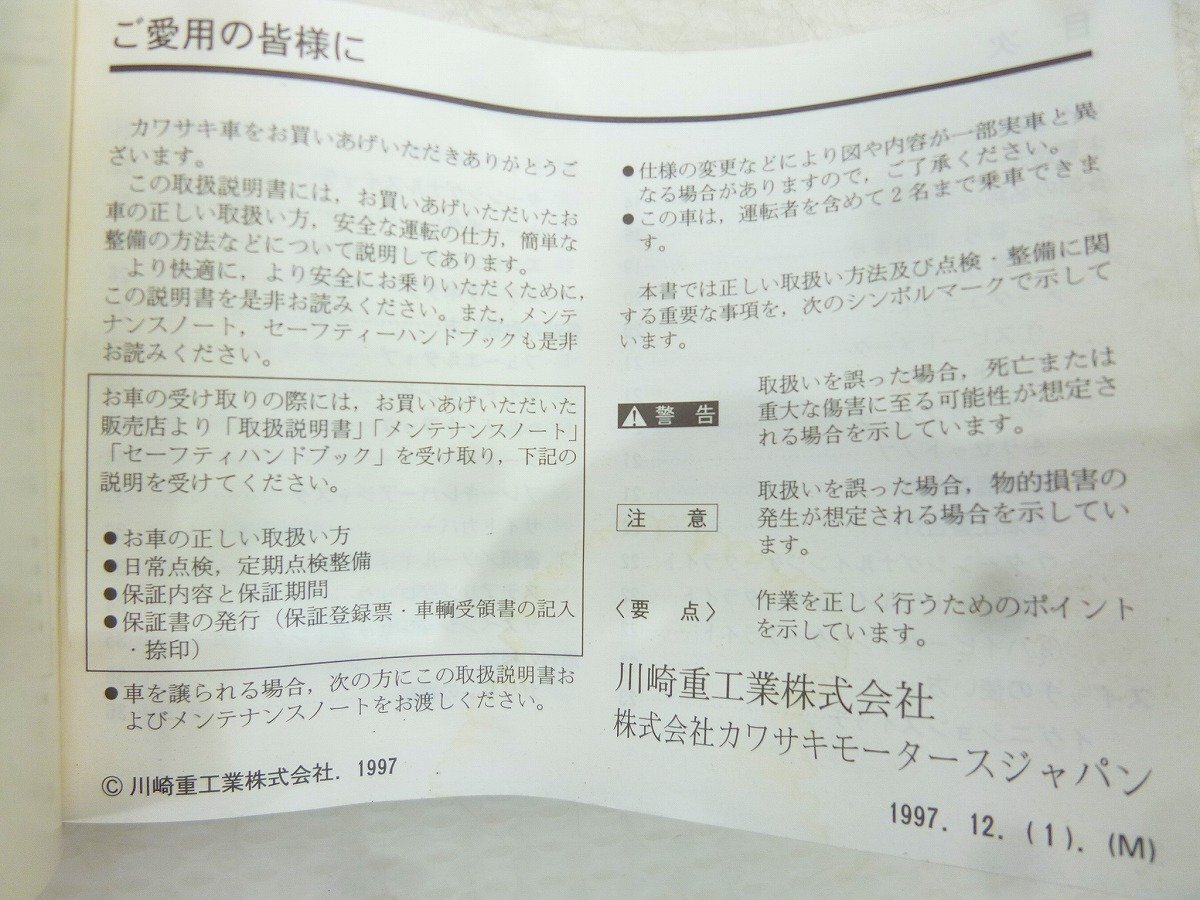 ご愛用の皆様に
カワサキ車をお買いあげいただきありがとうご
ざいます。
この取扱説明書には，お買いあげいただいたお
車の正しい取扱い方，安全な運転の仕方，簡単な
整備の方法などについて説明してあります。
より快適に，より安全にお乗りいただくために，
この説明書を是非お読みください。また，メンテ
ナンスノート，セーフティーハンドブックも是非
お読みください。
お車の受け取りの際には，お買いあげいただいた
販売店より「取扱説明書」「メンテナンスノート」
「セーフティハンドブック」を受け取り，下記の
説明を受けてください。
●お車の正しい取扱い方
●日常点検，定期点検整備
●保証内容と保証期間
●保証書の発行（保証登録票・車輌受領書の記入
・捺印）
●車を譲られる場合，次の方にこの取扱説明書お
よびメンテナンスノートをお渡しください。
© 川崎重工業株式会社. 1997
●仕様の変更などにより図や内容が一部実車と異
なる場合がありますので，ご了承ください。
●この車は，運転者を含めて2名まで乗車できま
す。
本書では正しい取扱い方法及び点検・整備に関
する重要な事項を，次のシンボルマークで示して
います。
⚠警告
取扱いを誤った場合，死亡または
重大な傷害に至る可能性が想定さ
れる場合を示しています。
注意
取扱いを誤った場合，物的損害の
発生が想定される場合を示してい
ます。
〈要点〉
作業を正しく行うためのポイント
を示しています。
川崎重工業株式会社
株式会社カワサキモータースジャパン
1997. 12. (1). (M)